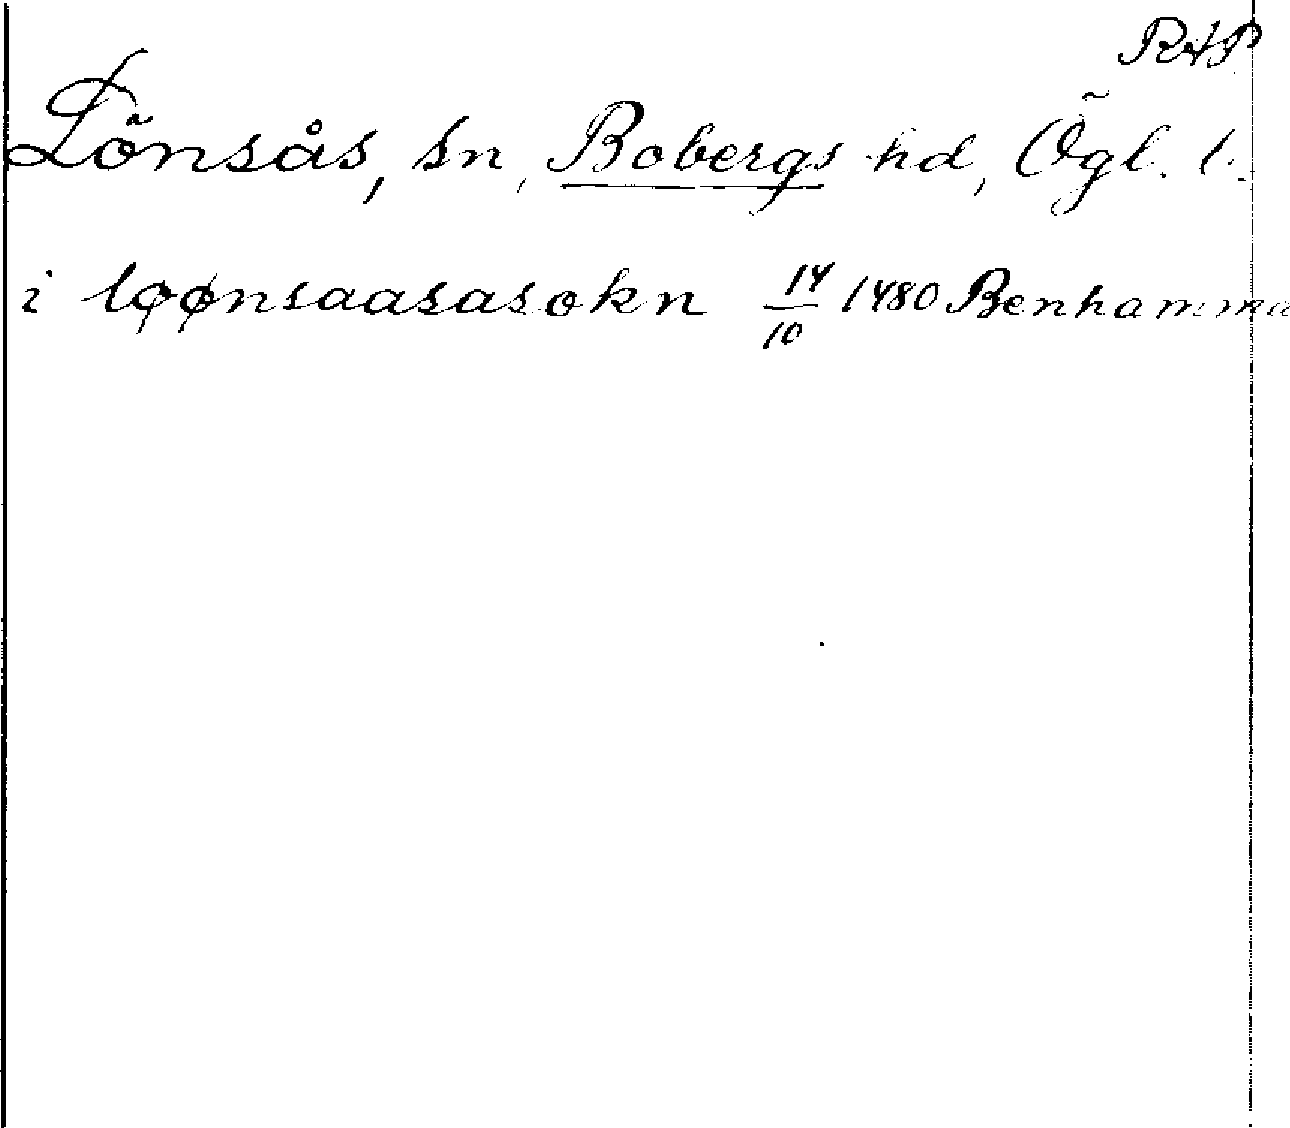 RAP
Lönsås, sn, Bobergs hd, Ögl. l.
i løønsaasasokn 14/10 1480 Benhamma